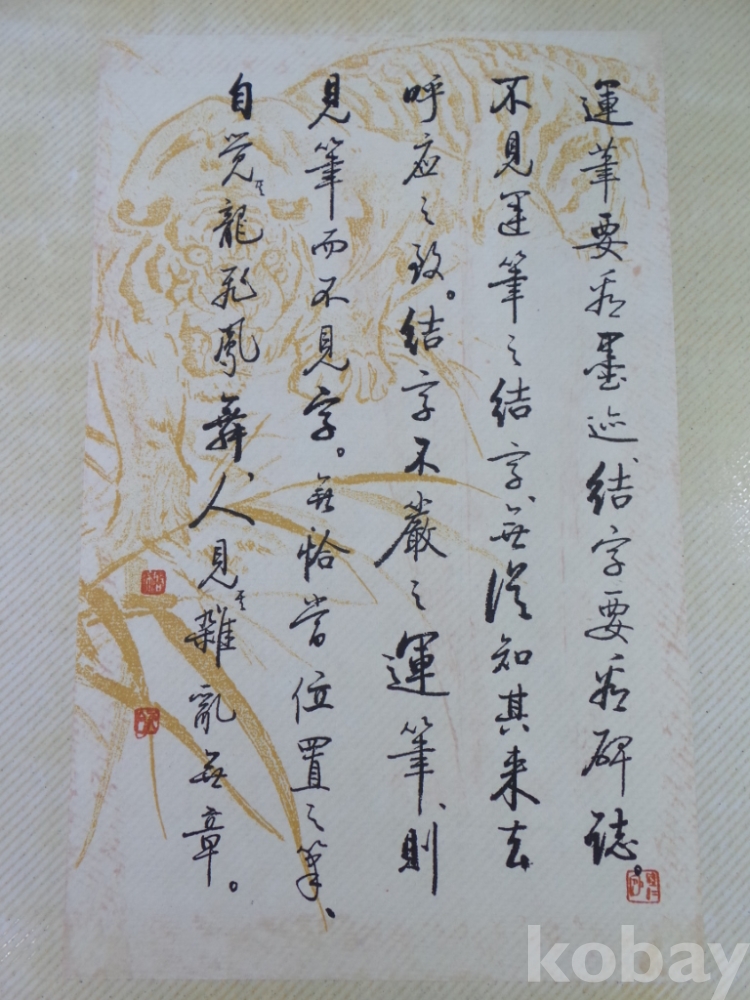 運筆要看墨迹、結字要看碑誌。
不見運筆之結字、無從知其来去
呼应之致。結字不嚴之運筆、則
見筆而不見字。無恰當位置之筆、
自覚其龍飛鳳舞、人見其雜亂無章。
kobay